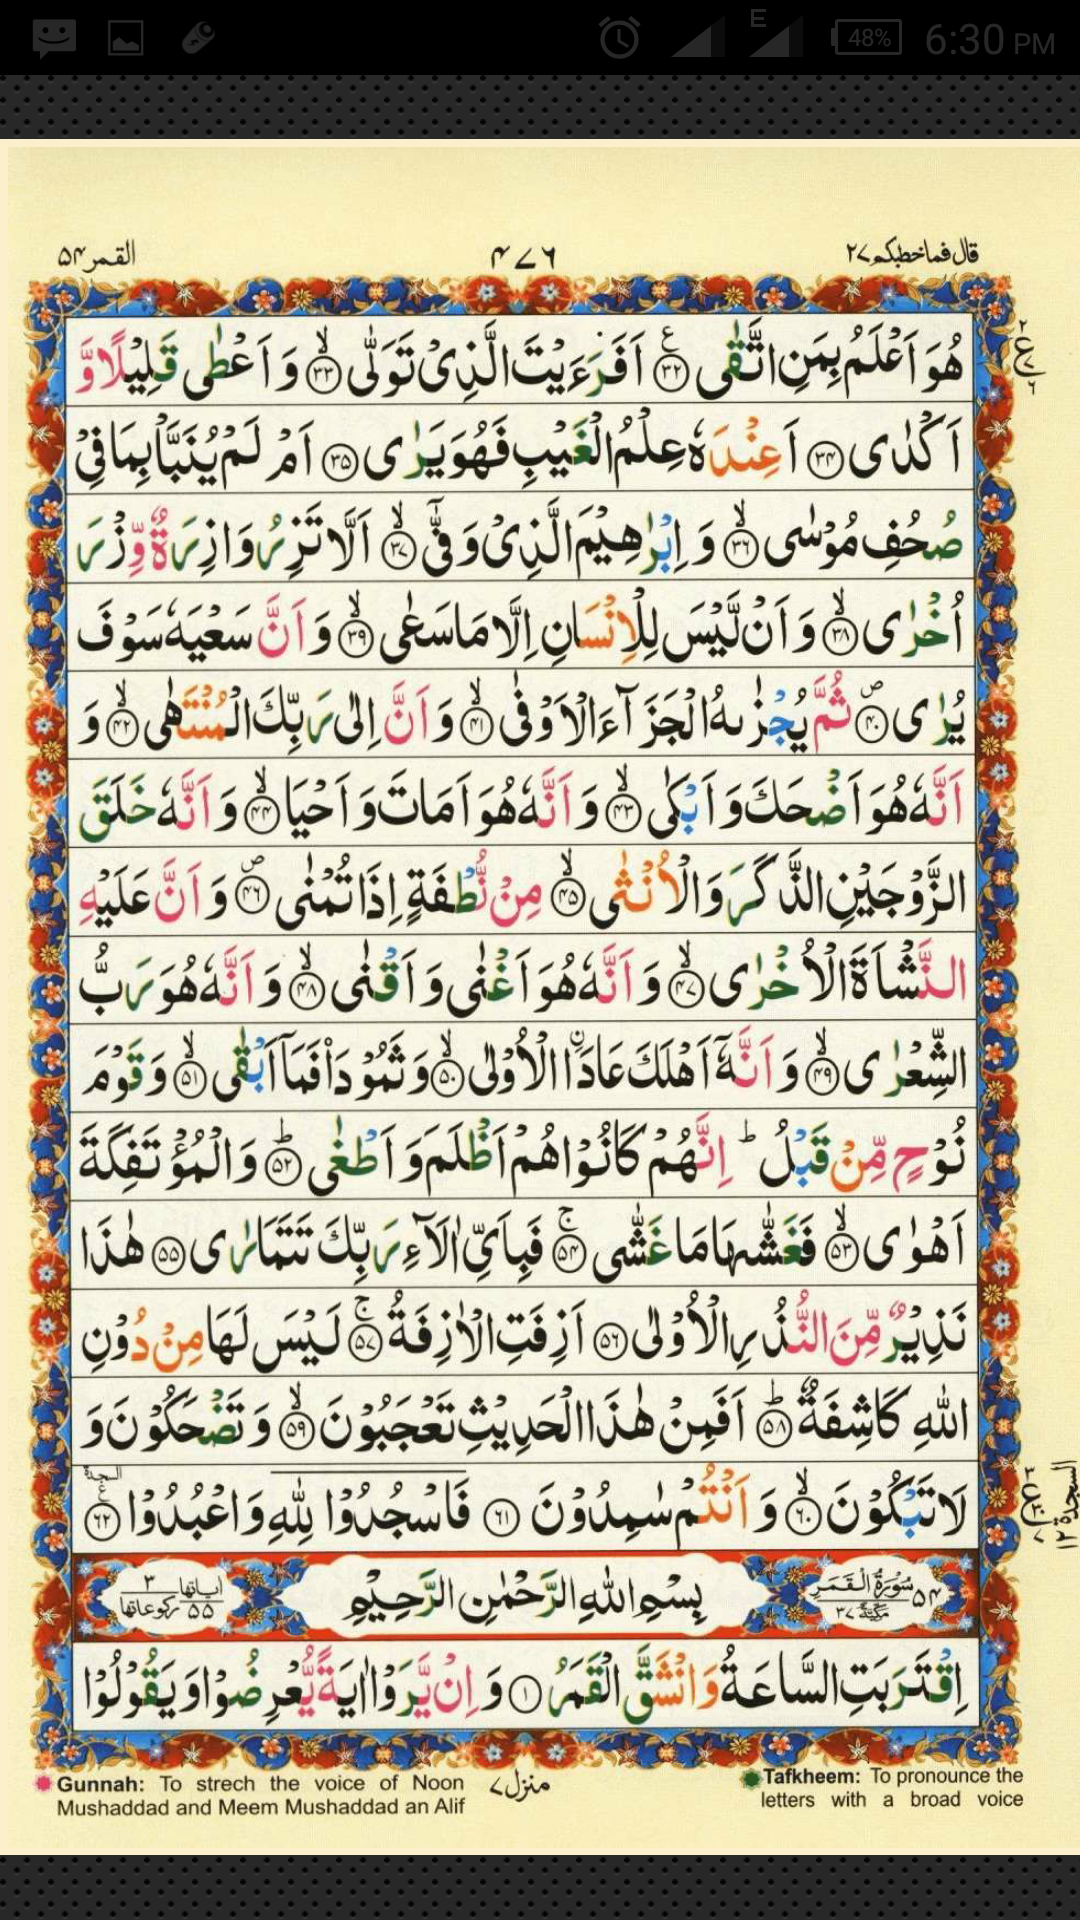 48%
E
6:30 PM
قال فماخطبكم ۲۷
۴۷۶
القمر ۵۴
هُوَ اَعْلَمُ بِمَنِ اتَّقٰى ﴿۳۲﴾ اَفَرَءَيْتَ الَّذِىْ تَوَلّٰى ﴿۳۳﴾ وَ اَعْطٰى قَلِيْلًا وَّ
اَكْدٰى ﴿۳۴﴾ اَ عِنْدَهٗ عِلْمُ الْغَيْبِ فَهُوَ يَرٰى ﴿۳۵﴾ اَمْ لَمْ يُنَبَّاْ بِمَا فِىْ
صُحُفِ مُوْسٰى ﴿۳۶﴾ وَ اِبْرٰهِيْمَ الَّذِىْ وَفّٰىٓ ﴿۳۷﴾ اَلَّا تَزِرُ وَازِرَةٌ وِّزْرَ
اُخْرٰى ﴿۳۸﴾ وَ اَنْ لَّيْسَ لِلْاِنْسَانِ اِلَّا مَا سَعٰى ﴿۳۹﴾ وَ اَنَّ سَعْيَهٗ سَوْفَ
يُرٰى ﴿۴۰﴾ ثُمَّ يُجْزٰىهُ الْجَزَآءَ الْاَوْفٰى ﴿۴۱﴾ وَ اَنَّ اِلٰى رَبِّكَ الْمُنْتَهٰى ﴿۴۲﴾ وَ
اَنَّهٗ هُوَ اَضْحَكَ وَ اَبْكٰى ﴿۴۳﴾ وَ اَنَّهٗ هُوَ اَمَاتَ وَ اَحْيَا ﴿۴۴﴾ وَ اَنَّهٗ خَلَقَ
الزَّوْجَيْنِ الذَّكَرَ وَ الْاُنْثٰى ﴿۴۵﴾ مِنْ نُّطْفَةٍ اِذَا تُمْنٰى ﴿۴۶﴾ وَ اَنَّ عَلَيْهِ
النَّشْاَةَ الْاُخْرٰى ﴿۴۷﴾ وَ اَنَّهٗ هُوَ اَغْنٰى وَ اَقْنٰى ﴿۴۸﴾ وَ اَنَّهٗ هُوَ رَبُّ
الشِّعْرٰى ﴿۴۹﴾ وَ اَنَّهٗٓ اَهْلَكَ عَادَا۟ الْاُوْلٰى ﴿۵۰﴾ وَ ثَمُوْدَا۟ فَمَاۤ اَبْقٰى ﴿۵۱﴾ وَ قَوْمَ
نُوْحٍ مِّنْ قَبْلُ ؕ اِنَّهُمْ كَانُوْا هُمْ اَظْلَمَ وَ اَطْغٰى ﴿۵۲﴾ وَ الْمُؤْتَفِكَةَ
اَهْوٰى ﴿۵۳﴾ فَغَشّٰىهَا مَا غَشّٰى ﴿۵۴﴾ فَبِاَىِّ اٰلَآءِ رَبِّكَ تَتَمَارٰى ﴿۵۵﴾ هٰذَا
نَذِيْرٌ مِّنَ النُّذُرِ الْاُوْلٰى ﴿۵۶﴾ اَزِفَتِ الْاٰزِفَةُ ﴿۵۷﴾ لَيْسَ لَهَا مِنْ دُوْنِ
اللّٰهِ كَاشِفَةٌ ﴿۵۸﴾ اَفَمِنْ هٰذَا الْحَدِيْثِ تَعْجَبُوْنَ ﴿۵۹﴾ وَ تَضْحَكُوْنَ وَ
لَا تَبْكُوْنَ ﴿۶۰﴾ وَ اَنْتُمْ سٰمِدُوْنَ ﴿۶۱﴾ فَاسْجُدُوْا لِلّٰهِ وَ اعْبُدُوْا ﴿۶۲﴾ السجدة
السجدة ۱۲
۵۴ سُوْرَةُ الْقَمَرِ مَكِّيَّةٌ ۳۷ بِسْمِ اللّٰهِ الرَّحْمٰنِ الرَّحِيْمِ اٰياتها ۵۵ ركوعاتها ۳
اِقْتَرَبَتِ السَّاعَةُ وَ انْشَقَّ الْقَمَرُ ﴿۱﴾ وَ اِنْ يَّرَوْا اٰيَةً يُّعْرِضُوْا وَ يَقُوْلُوْا
Gunnah: To strech the voice of Noon
Mushaddad and Meem Mushaddad an Alif
منزل ۷
Tafkheem: To pronounce the
letters with a broad voice